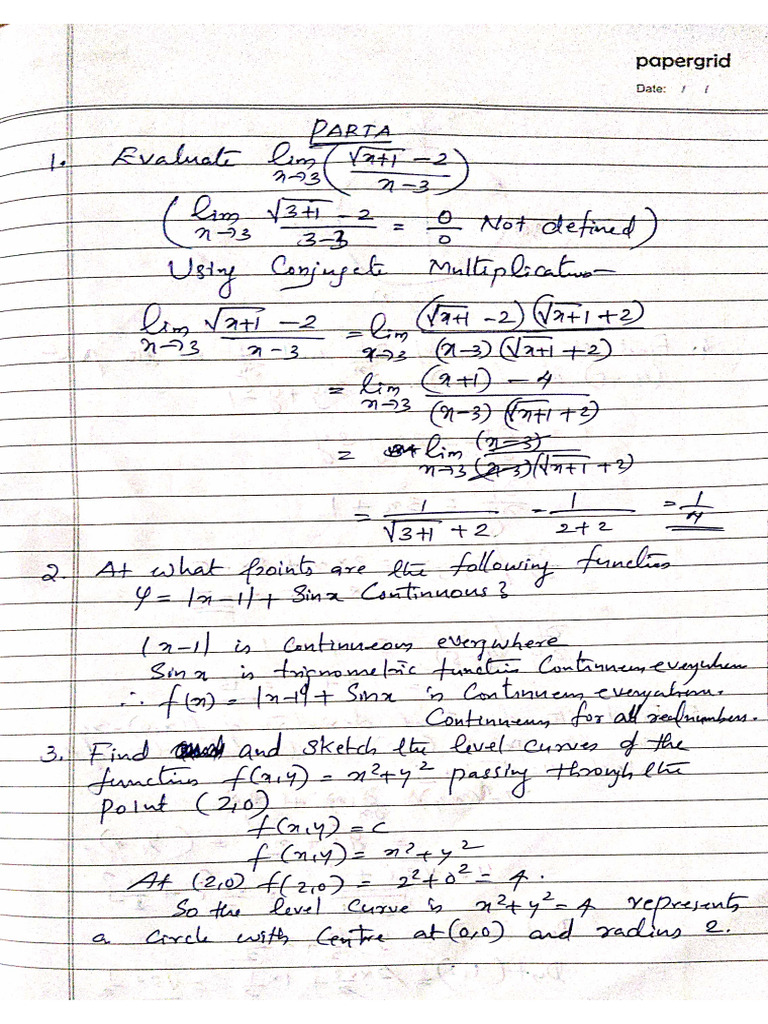 papergrid
Date: / /
PART A
1. Evaluate lim x→3 (√x+1 - 2 / x-3)
(lim x→3 √3+1 - 2 / 3-3 = 0/0 Not defined)
Using Conjugate Multiplication
lim x→3 √x+1 - 2 / x-3 = lim x→3 (√x+1 - 2)(√x+1 + 2) / (x-3)(√x+1 + 2)
= lim x→3 (x+1) - 4 / (x-3)(√x+1 + 2)
= lim x→3 (x-3) / (x-3)(√x+1 + 2)
= 1 / √3+1 + 2 = 1 / 2+2 = 1/4
2. At what points are the following function
y = |x-1| + Sinx Continuous?
|x-1| is continuous everywhere
Sin x is trignometric function Continuous everywhere
∴ f(x) = |x-1| + Sinx is Continuous everywhere.
Continuous for all real numbers.
3. Find and sketch the level curves of the
function f(x,y) = x²+y² passing through the
point (2,0)
f(x,y) = c
f(x,y) = x²+y²
At (2,0) f(2,0) = 2²+0² = 4.
So the level curve is x²+y²=4 represents
a circle with Centre at (0,0) and radius 2.